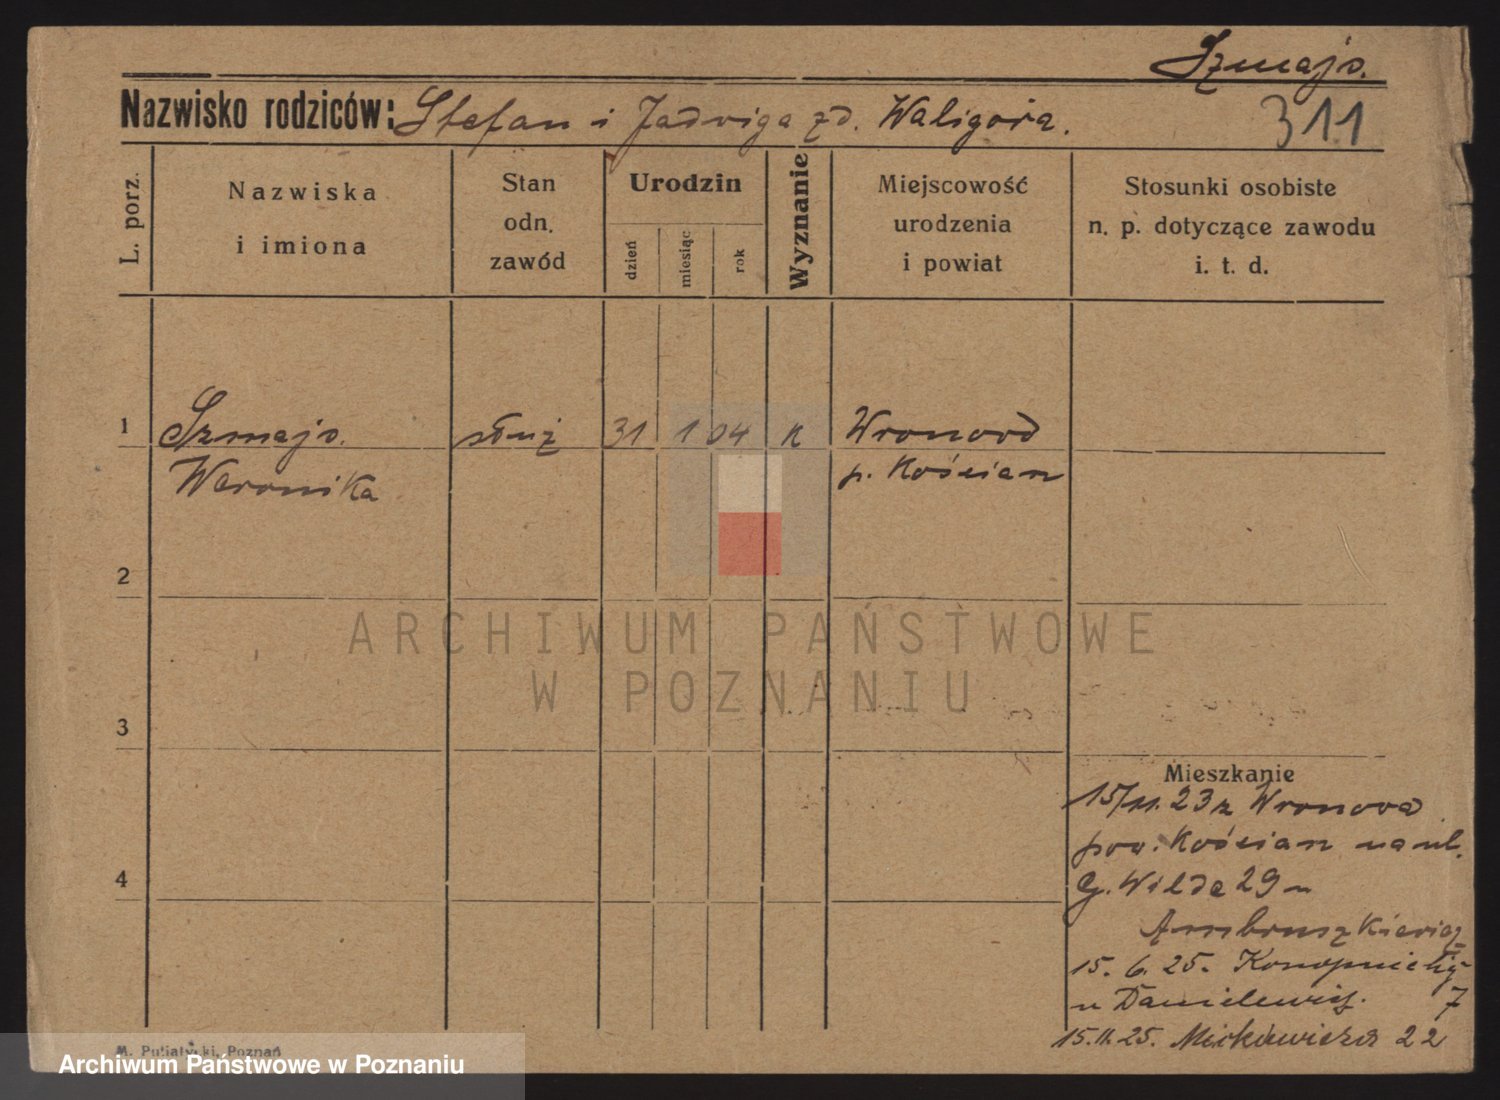 Szmajs.
Nazwisko rodziców: Stefan i Jadwiga zd. Waligóra.
311
L. porz.
Nazwiska
i imiona
Stan
odn.
zawód
Urodzin
dzień
miesiąc
rok
Wyznanie
Miejscowość
urodzenia
i powiat
Stosunki osobiste
n. p. dotyczące zawodu
i. t. d.
1
Szmajs.
służ
31
1
04
k
Wronowo
Weronika
p. Kościan
2
ARCHIWUM PAŃSTWOWE
W POZNANIU
3
Mieszkanie
15/11. 23 z Wronowa
pow. Kościan na ul.
G. Wilda 29 u
4
15. 6. 25. Konopnickiej
u Danielewicz. 7
15.11.25. Mickiewicza 22
M. Putiatycki, Poznań
Archiwum Państwowe w Poznaniu